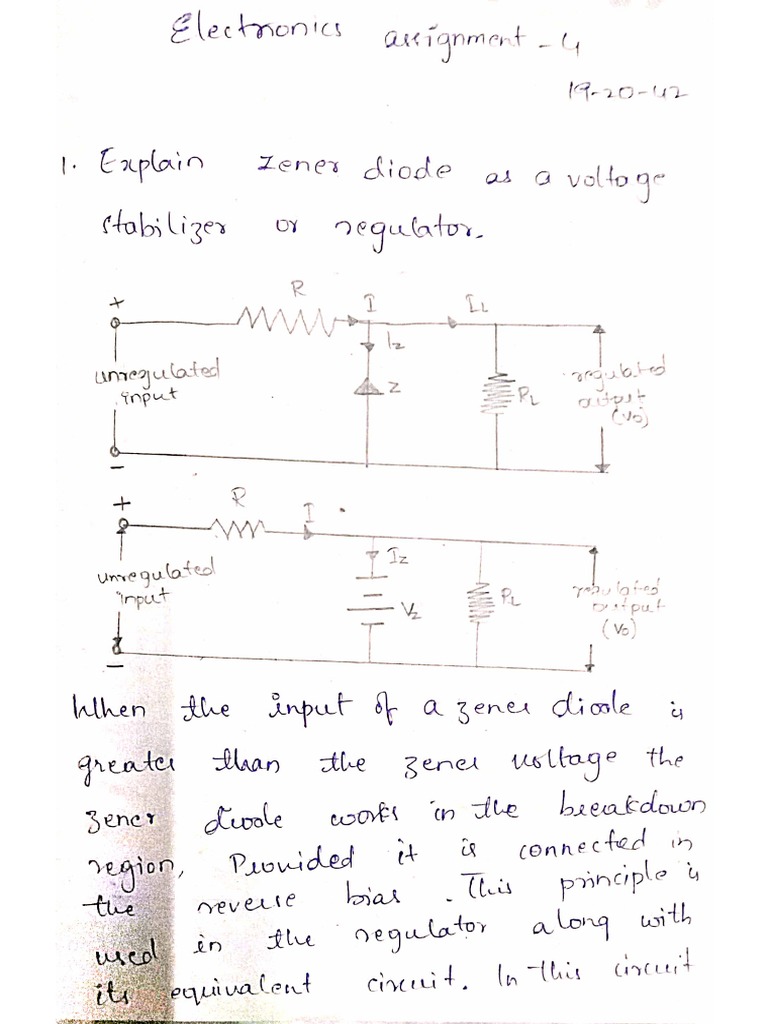 Electronics assignment - 4
19-20-42
1. Explain zener diode as a voltage
stabilizer or regulator.
R I IL
+
Iz
unregulated
input
Z
RL
regulated
output
(Vo)
-
R I
+
Iz
unregulated
input
Vz
RL
regulated
output
(Vo)
-
When the input of a zener diode is
greater than the zener voltage the
zener diode works in the breakdown
region, Provided it is connected in
the reverse bias. This principle is
used in the regulator along with
its equivalent circuit. In this circuit